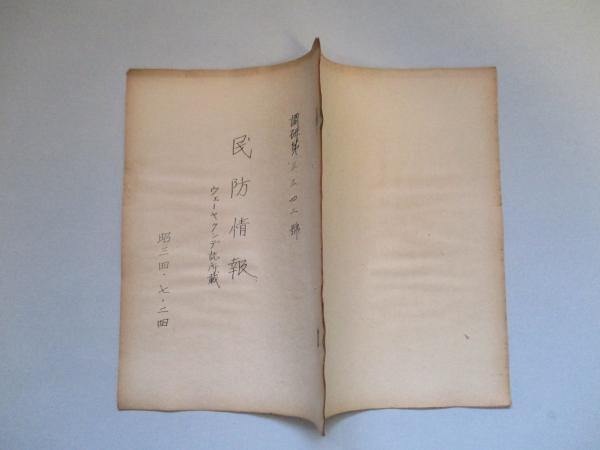 調研第三三四二號
民防情報
ウェーヤクンデ誌所載
昭三四・七・二四